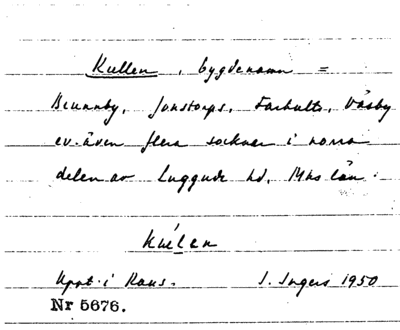 Kullen, bygdenamn =
Brunnby, Jonstorps, Farhults, Väsby
ev. även flera socknar i norra
delen av Luggude hd, Mhs län.
Kullen
Uppt. i Raus. I. Ingers 1950
Nr 5676.